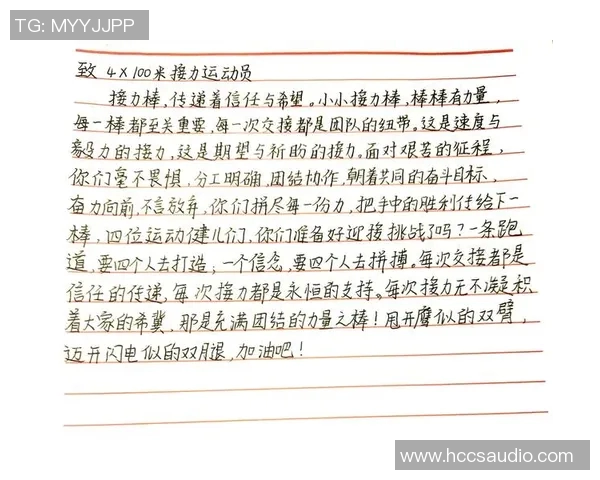 TG: MYYJJPP
致 4×100米接力运动员
接力棒，传递着信任与希望。小小接力棒，棒棒有力量，
每一棒都至关重要，每一次交接都是团队的纽带。这是速度与
毅力的接力，这是期望与祈盼的接力。面对艰苦的征程，
你们毫不畏惧，分工明确，团结协作，朝着共同的奋斗目标，
奋力向前，不言放弃，你们拼尽每一份力，把手中的胜利传给下一
棒，四位运动健儿们，你们准备好迎接挑战了吗？一条跑
道，要四个人去打造；一个信念，要四个人去拼搏。每次交接都是
信任的传递，每次接力都是永恒的支持。每次接力无不涣是积
着大家的希冀，那是充满团结的力量之棒！甩开鹰似的双臂，
迈开闪电似的双腿，加油吧！
www.hccsaudio.com